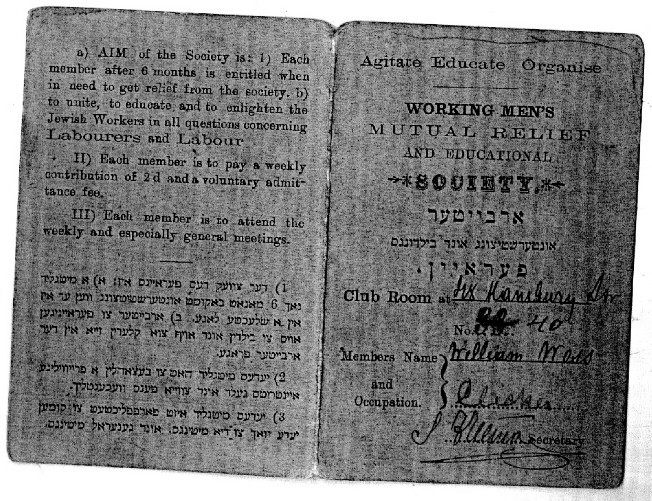 a) AIM of the Society is: 1) Each
member after 6 months is entitled when
in need to get relief from the society. b)
to unite, to educate and to enlighten the
Jewish Workers in all questions concerning
Labourers and Labour
II) Each member is to pay a weekly
contribution of 2 d and a voluntary admit-
tance fee.
III) Each member is to attend the
weekly and especially general meetings.
1) דער צוועק דעס פעראיינס איז: א) א מיטגליד
נאך 6 מאנאט באקומט אונטערשטיצונג ווען ער איז
אין א שלעכטע לאגע. ב) ארבייטער צו פעראייניגען
אויס צו בילדן אונד אויף צוא קלערין זייא אין דער
ארבייטער פראגע.
2) יעדעס מיטגליד האט צו בעצאהלין א פרייוויליגע
איינטריטס געלד אונד צווייא פענס וועכענטליך.
3) יעדעס מיטגליד איזט פארפפליכטעט צו קומען
יעדע וואך צו דיא מיטינגס, אונד גענעראל מיטינגס.
Agitate Educate Organise
WORKING MEN'S
MUTUAL RELIEF
AND EDUCATIONAL
SOCIETY,
ארבייטער
אונטערשטיצונג אונד בילדונגס
פעראיין.
Club Room at
No. 40
Members Name William Wess
and
Occupation.
Secretary